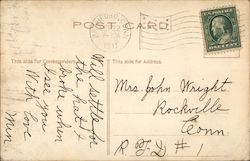 POST CARD
This side for Correspondence.
This side for Address.
Will settle for
the hurt &
broke when
I see you
With love
Min
Mrs John Wright
Rockville
Conn.
R F D #1